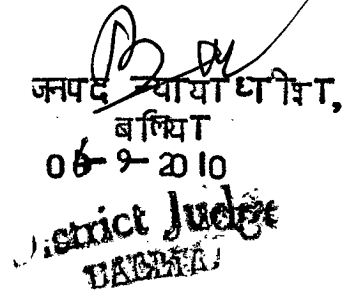 जनपद न्यायाधीश,
बलिया
06-9-2010
District Judge
BALLIA